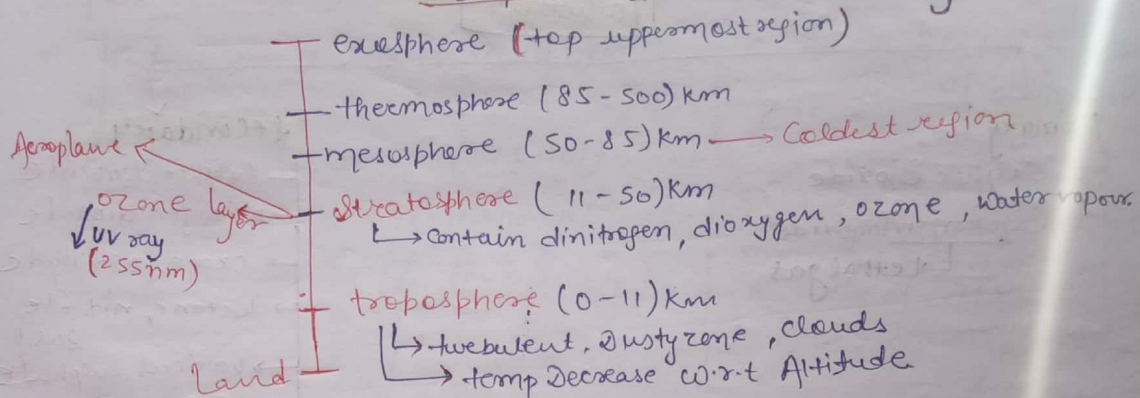 exosphere (top uppermost region)
thermosphere (85-500) km
mesosphere (50-85) km → Coldest region
Aeroplane
Stratosphere (11-50) km
ozone layer
→ Contain dinitrogen, dioxygen, ozone, water vapour.
UV ray
(255nm)
troposphere (0-11) km
→ turbulent, Dusty zone, clouds
→ temp Decrease w.r.t Altitude
Land